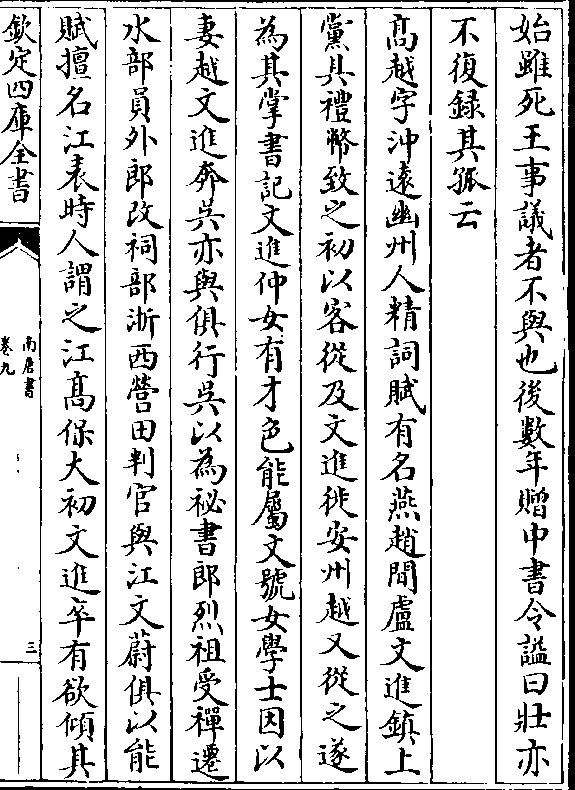 始雖死王事議者不與也後數年贈中書令諡曰壯亦
不復録其孤云
高越字沖遠幽州人精詞賦有名燕趙間盧文進鎮上
黨具禮幣致之初以客從及文進徙安州越又從之遂
為其掌書記文進仲女有才色能屬文號女學士因以
妻越文進奔吳亦與俱行吳以為祕書郎烈祖受禪遷
水部員外郎改祠部浙西營田判官與江文蔚俱以能
賦擅名江表時人謂之江高保大初文進卒有欲傾其
欽定四庫全書
南唐書
卷九
三